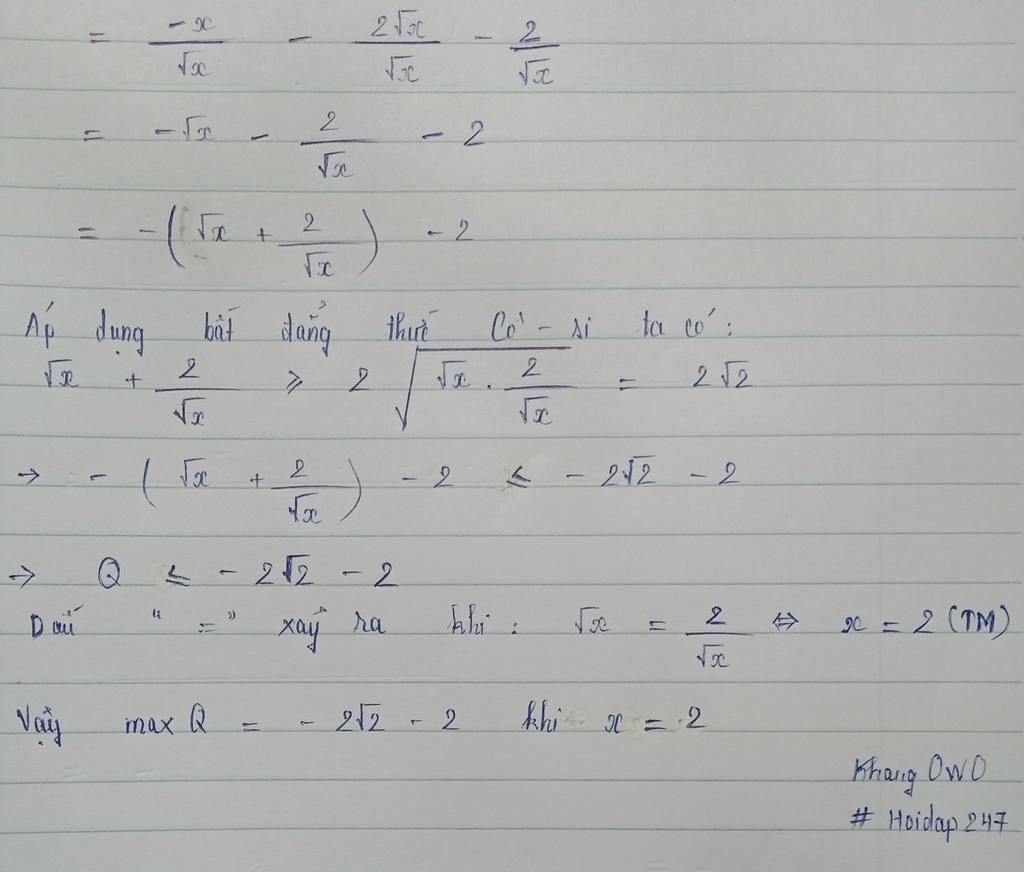 = -x/√x - 2√x/√x - 2/√x
= -√x - 2/√x - 2
= -(√x + 2/√x) - 2
Áp dụng bất đẳng thức Cô-si ta có:
√x + 2/√x ⩾ 2√(√x . 2/√x) = 2√2
→ -(√x + 2/√x) - 2 ⩽ -2√2 - 2
→ Q ⩽ -2√2 - 2
Dấu "=" xảy ra khi: √x = 2/√x ⇔ x = 2 (TM)
Vậy max Q = -2√2 - 2 khi x = 2
Khang OWO
# Hoidap247